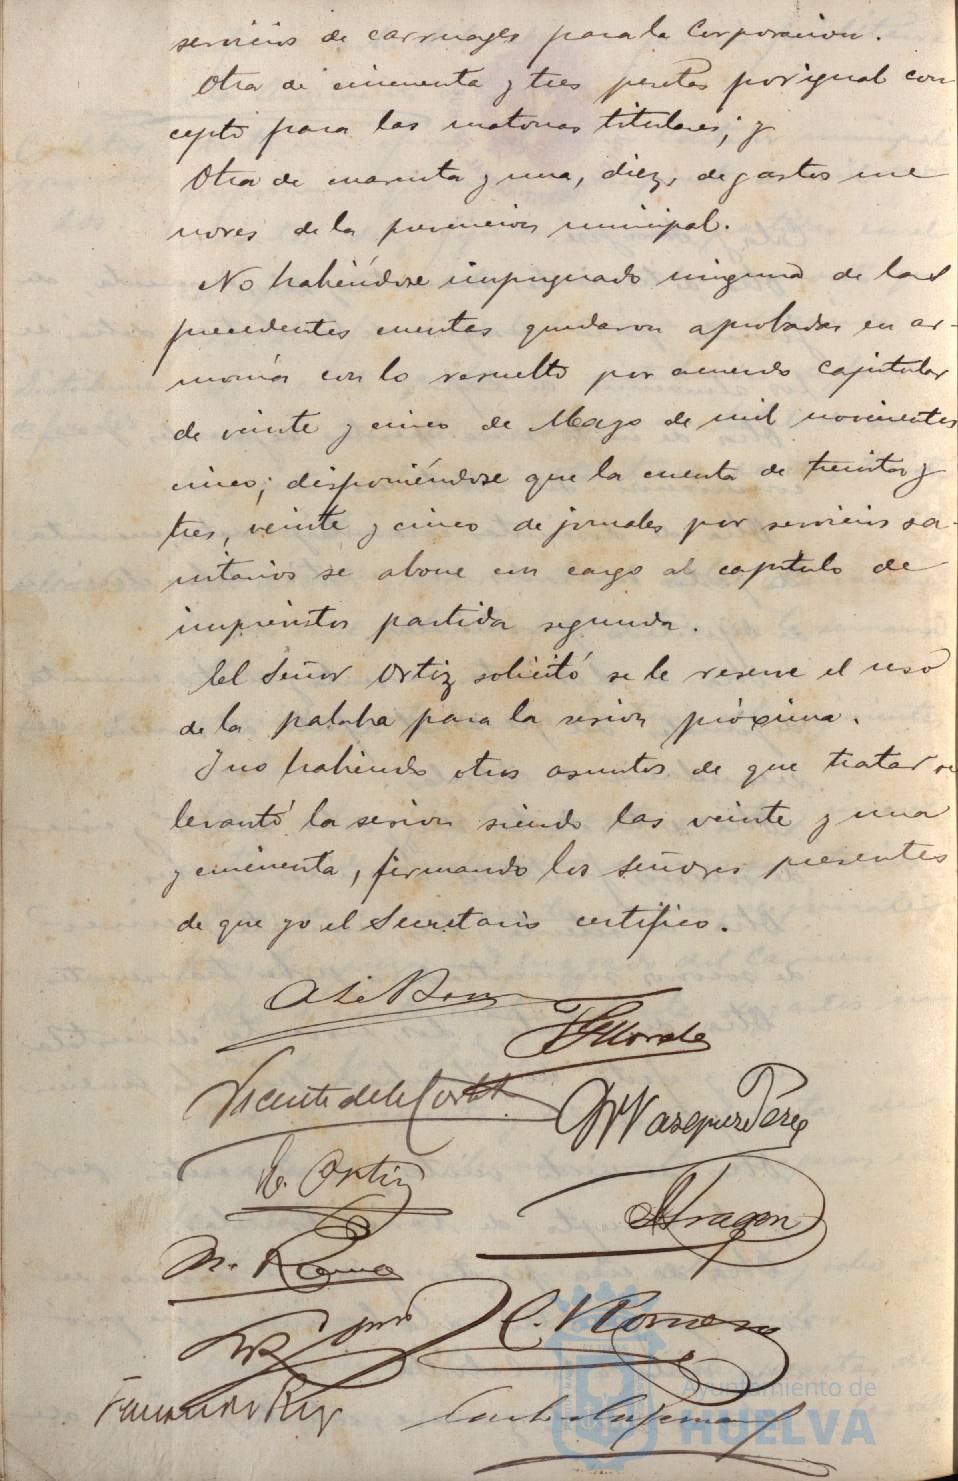 servicios de carruages para la Corporacion.
Otra de cincuenta y tres pesetas por igual con
cepto para las matonas titulares; y
Otra de cuarenta y una, diez, de gastos me
nores de la prevencion municipal.
No habiéndose impugnado ninguna de las
precedentes cuentas quedaron aprobadas en ar-
monia con lo resuelto por acuerdo capitular
de veinte y cinco de Mayo de mil novecientos
cinco; disponiéndose que la cuenta de treinta y
tres, veinte y cinco de jornales por servicios sa-
nitarios se abone con cargo al capitulo de
imprevistos partida segunda.
El Señor Ortiz solicitó se le reserve el uso
de la palabra para la sesion próxima.
Y no habiendo otros asuntos de que tratar se
levantó la sesion siendo las veinte y una
y cincuenta, firmando los Señores presentes
de que yo el Secretario certifico.
Vicente de la Corte
Vazquez Perez
Ortiz
Aragon
C. Romero
Ayuntamiento de
HUELVA